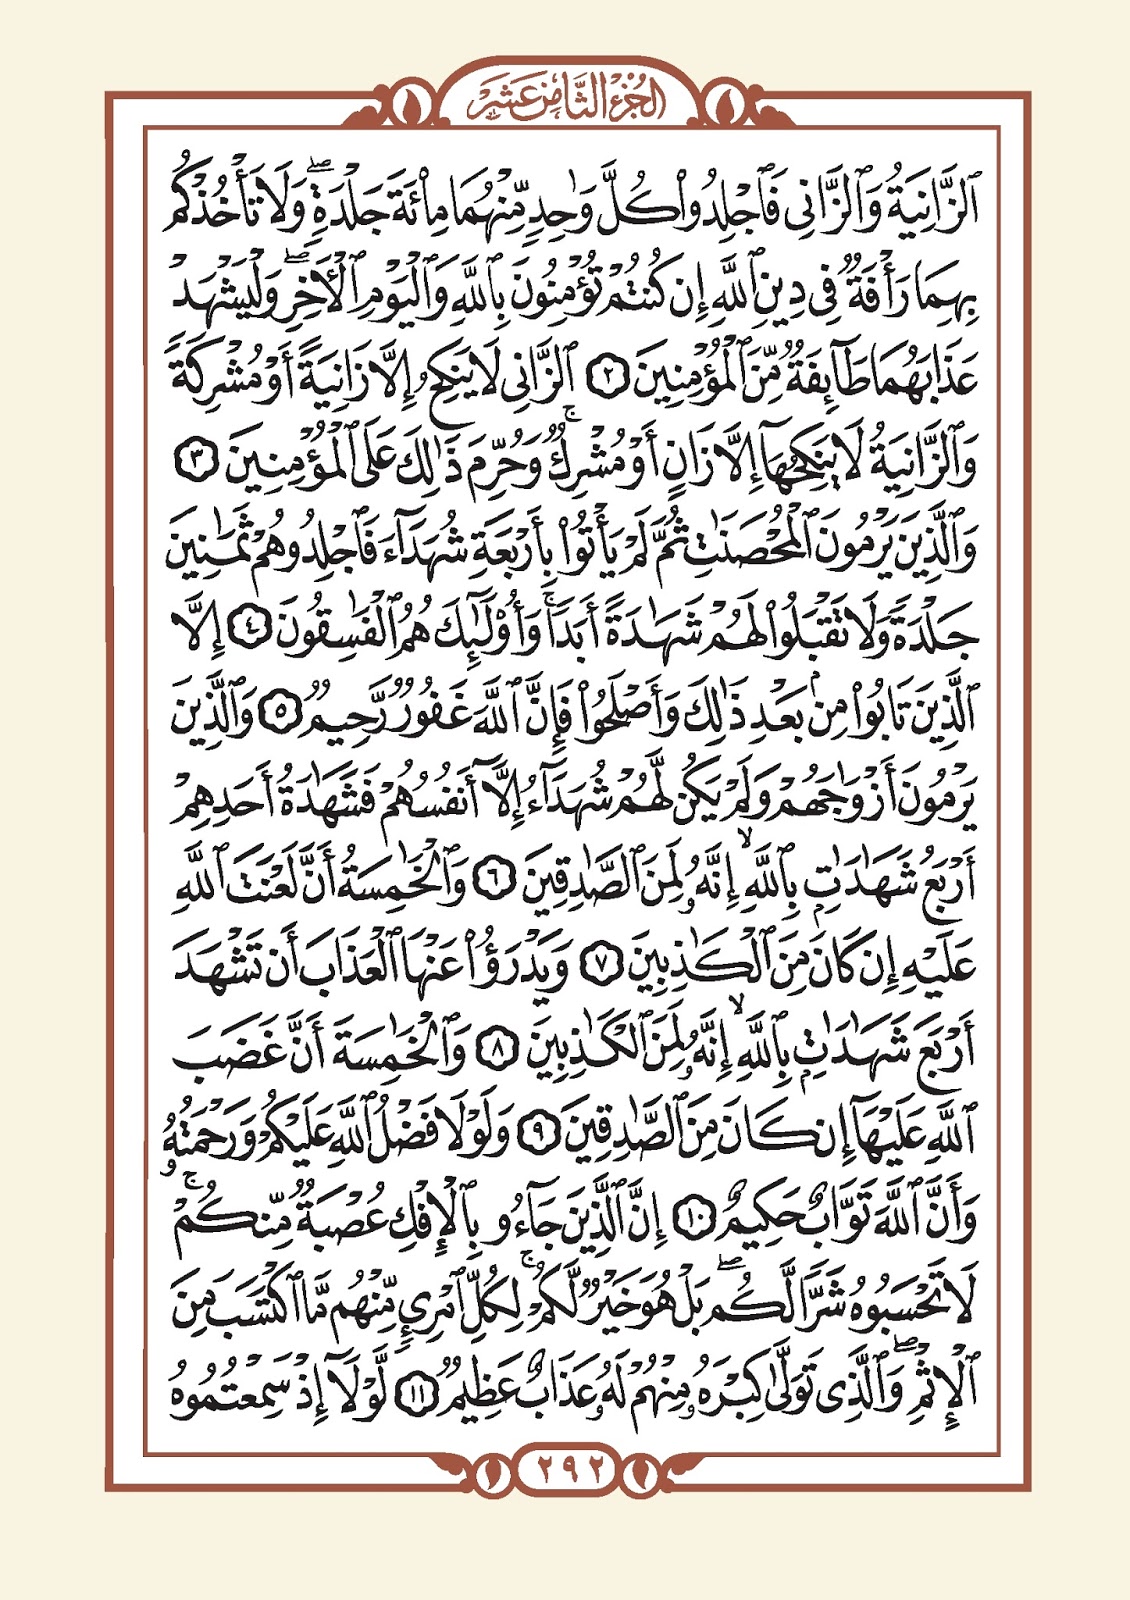 الجزء الثامن عشر
ٱلزَّانِيَةُ وَٱلزَّانِى فَٱجْلِدُوا۟ كُلَّ وَٰحِدٍ مِّنْهُمَا مِا۟ئَةَ جَلْدَةٍ ۖ وَلَا تَأْخُذْكُم
بِهِمَا رَأْفَةٌ فِى دِينِ ٱللَّهِ إِن كُنتُمْ تُؤْمِنُونَ بِٱللَّهِ وَٱلْيَوْمِ ٱلْأَخِرِ ۖ وَلْيَشْهَدْ
عَذَابَهُمَا طَآئِفَةٌ مِّنَ ٱلْمُؤْمِنِينَ ٢ ٱلزَّانِى لَا يَنكِحُ إِلَّا زَانِيَةً أَوْ مُشْرِكَةً
وَٱلزَّانِيَةُ لَا يَنكِحُهَآ إِلَّا زَانٍ أَوْ مُشْرِكٌ ۚ وَحُرِّمَ ذَٰلِكَ عَلَى ٱلْمُؤْمِنِينَ ٣
وَٱلَّذِينَ يَرْمُونَ ٱلْمُحْصَنَٰتِ ثُمَّ لَمْ يَأْتُوا۟ بِأَرْبَعَةِ شُهَدَآءَ فَٱجْلِدُوهُمْ ثَمَٰنِينَ
جَلْدَةً وَلَا تَقْبَلُوا۟ لَهُمْ شَهَٰدَةً أَبَدًا ۚ وَأُو۟لَٰٓئِكَ هُمُ ٱلْفَٰسِقُونَ ٤ إِلَّا
ٱلَّذِينَ تَابُوا۟ مِنۢ بَعْدِ ذَٰلِكَ وَأَصْلَحُوا۟ فَإِنَّ ٱللَّهَ غَفُورٌ رَّحِيمٌ ٥ وَٱلَّذِينَ
يَرْمُونَ أَزْوَٰجَهُمْ وَلَمْ يَكُن لَّهُمْ شُهَدَآءُ إِلَّآ أَنفُسُهُمْ فَشَهَٰدَةُ أَحَدِهِمْ
أَرْبَعُ شَهَٰدَٰتٍۭ بِٱللَّهِ ۙ إِنَّهُۥ لَمِنَ ٱلصَّٰدِقِينَ ٦ وَٱلْخَٰمِسَةُ أَنَّ لَعْنَتَ ٱللَّهِ
عَلَيْهِ إِن كَانَ مِنَ ٱلْكَٰذِبِينَ ٧ وَيَدْرَؤُا۟ عَنْهَا ٱلْعَذَابَ أَن تَشْهَدَ
أَرْبَعَ شَهَٰدَٰتٍۭ بِٱللَّهِ ۙ إِنَّهُۥ لَمِنَ ٱلْكَٰذِبِينَ ٨ وَٱلْخَٰمِسَةَ أَنَّ غَضَبَ
ٱللَّهِ عَلَيْهَآ إِن كَانَ مِنَ ٱلصَّٰدِقِينَ ٩ وَلَوْلَا فَضْلُ ٱللَّهِ عَلَيْكُمْ وَرَحْمَتُهُۥ
وَأَنَّ ٱللَّهَ تَوَّابٌ حَكِيمٌ ١٠ إِنَّ ٱلَّذِينَ جَآءُو بِٱلْإِفْكِ عُصْبَةٌ مِّنكُمْ ۚ
لَا تَحْسَبُوهُ شَرًّا لَّكُم ۖ بَلْ هُوَ خَيْرٌ لَّكُمْ ۚ لِكُلِّ ٱمْرِئٍ مِّنْهُم مَّا ٱكْتَسَبَ مِنَ
ٱلْإِثْمِ ۖ وَٱلَّذِى تَوَلَّىٰ كِبْرَهُۥ مِنْهُمْ لَهُۥ عَذَابٌ عَظِيمٌ ١١ لَّوْلَآ إِذْ سَمِعْتُمُوهُ
٢٩٢